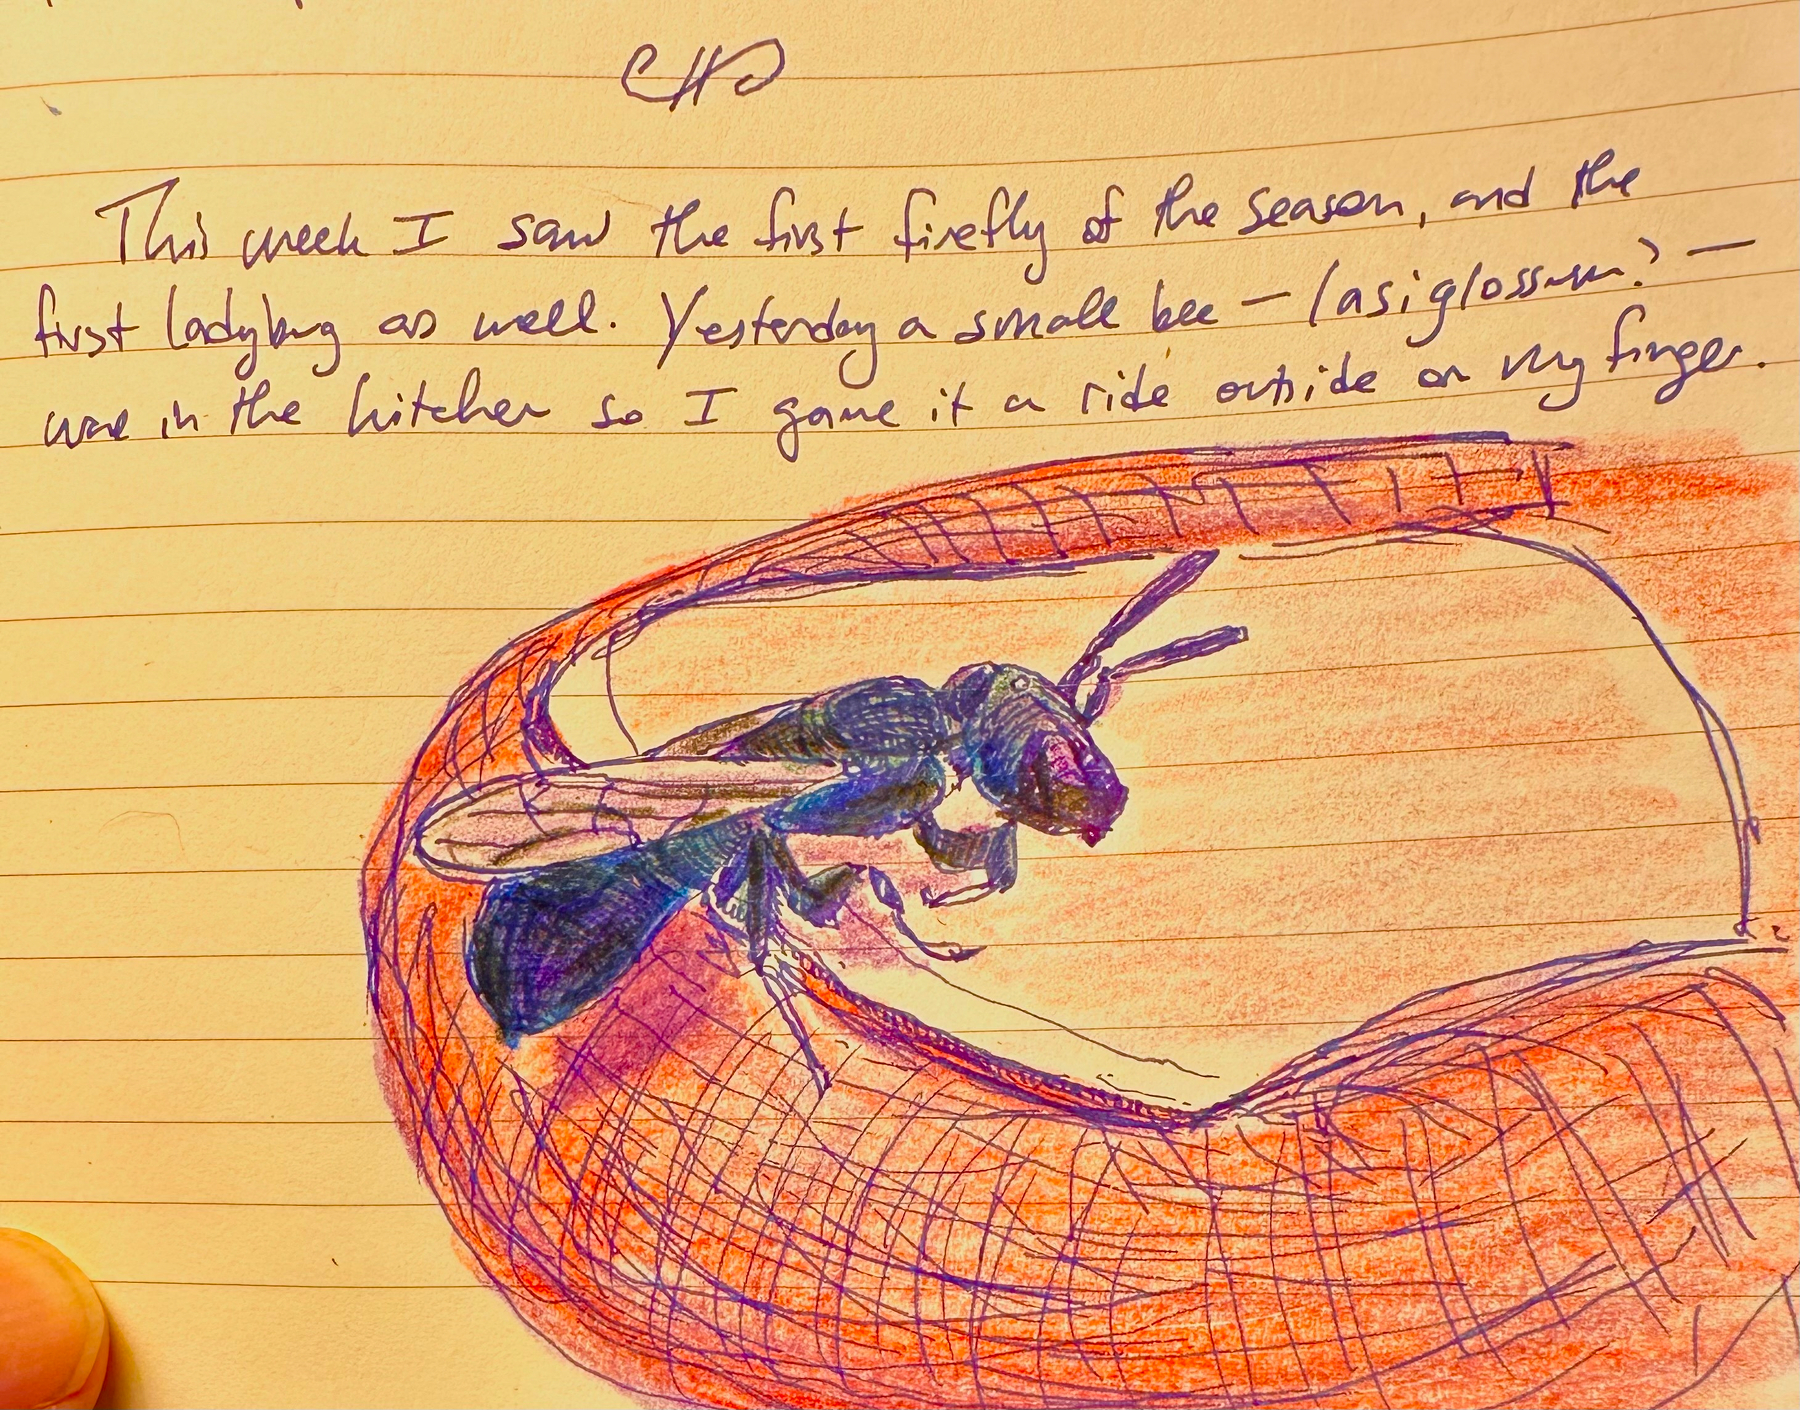 This week I saw the first firefly of the season, and the
first ladybug as well. Yesterday a small bee — lasiglossum? —
was in the kitchen so I gave it a ride outside on my finger.